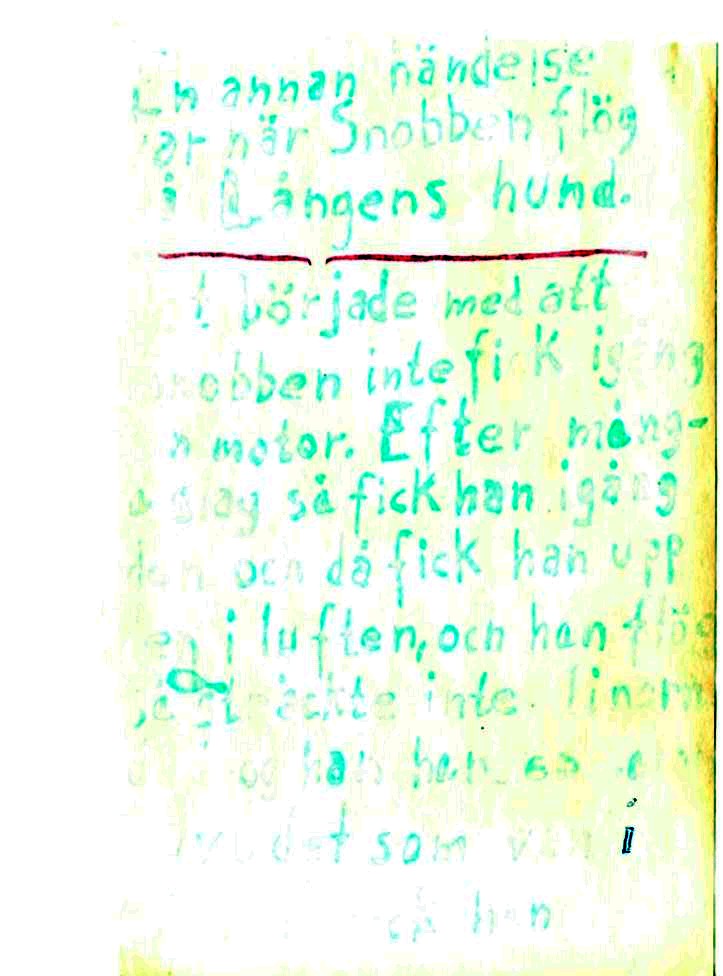 En annan händelse
var när Snobben flög
på Långens hund.
t började med att
Snobben inte fick igång
n motor. Efter mång-
a slag så fick han igång
den och då fick han upp
en i luften, och han flög
så sträckte inte linorn
og han han
huvudet som var i
ck han